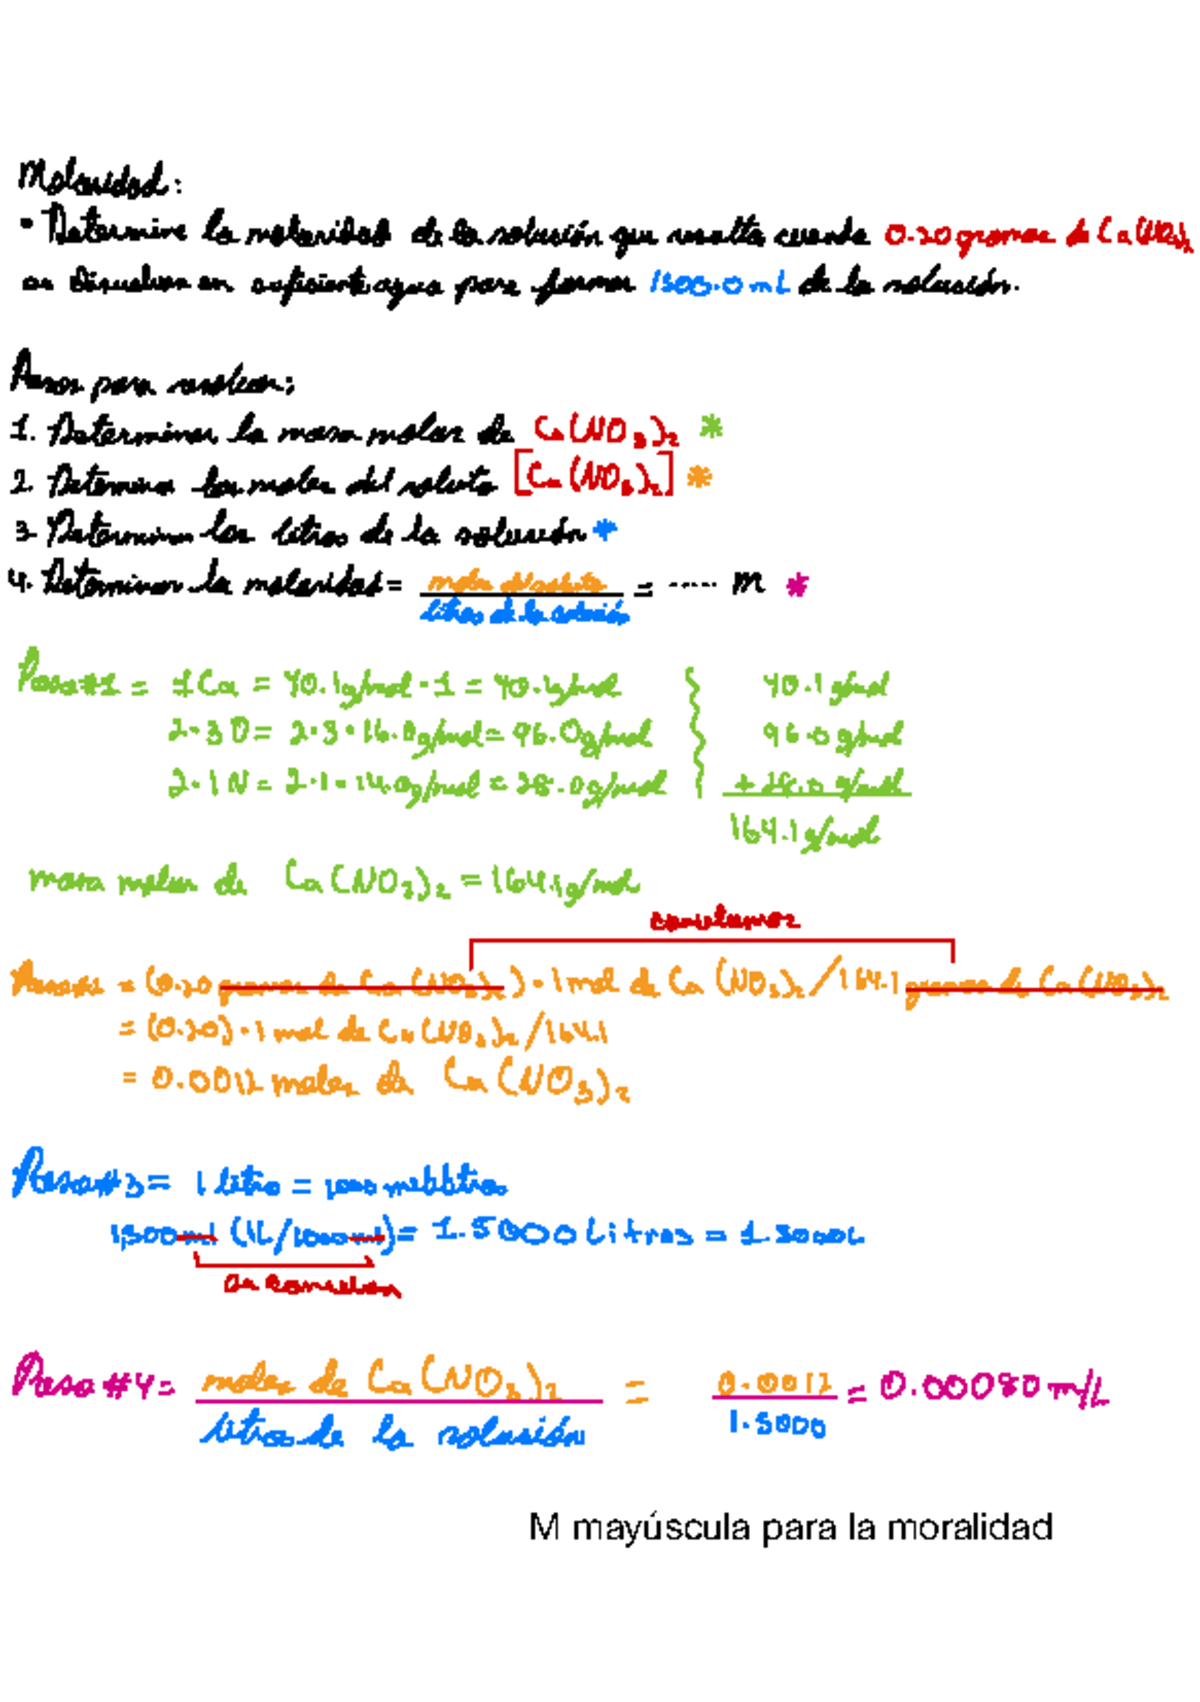 Molaridad:
• Determine la molaridad de la solución que resulta cuando 0.20 gramos de Ca(NO3)2
se disuelven en suficiente agua para formar 1500.0 mL de la solución.
Pasos para resolver:
1. Determinar la masa molar de Ca(NO3)2 *
2. Determinar los moles del soluto [Ca(NO3)2] *
3. Determinar los litros de la solución *
4. Determinar la molaridad = moles del soluto / litros de la solución = ---- M *
Paso#1 = 1Ca = 40.1g/mol • 1 = 40.1g/mol 40.1 g/mol
2•3 O = 2•3•16.0g/mol = 96.0g/mol 96.0 g/mol
2•1 N = 2•1•14.0g/mol = 28.0g/mol + 28.0 g/mol
164.1 g/mol
masa molar de Ca(NO3)2 = 164.1g/mol
cancelamos
Paso#2 = (0.20 gramos de Ca(NO3)2) • 1 mol de Ca(NO3)2 / 164.1 gramos de Ca(NO3)2
= (0.20) • 1 mol de Ca(NO3)2 / 164.1
= 0.0012 moles de Ca(NO3)2
Paso#3 = 1 litro = 1000 mililitros
1,500ml (1L/1000ml) = 1.5000 Litros = 1.5000L
se cancelan
Paso #4 = moles de Ca(NO3)2 / litros de la solución = 0.0012 / 1.5000 = 0.00080 m/L
M mayúscula para la moralidad